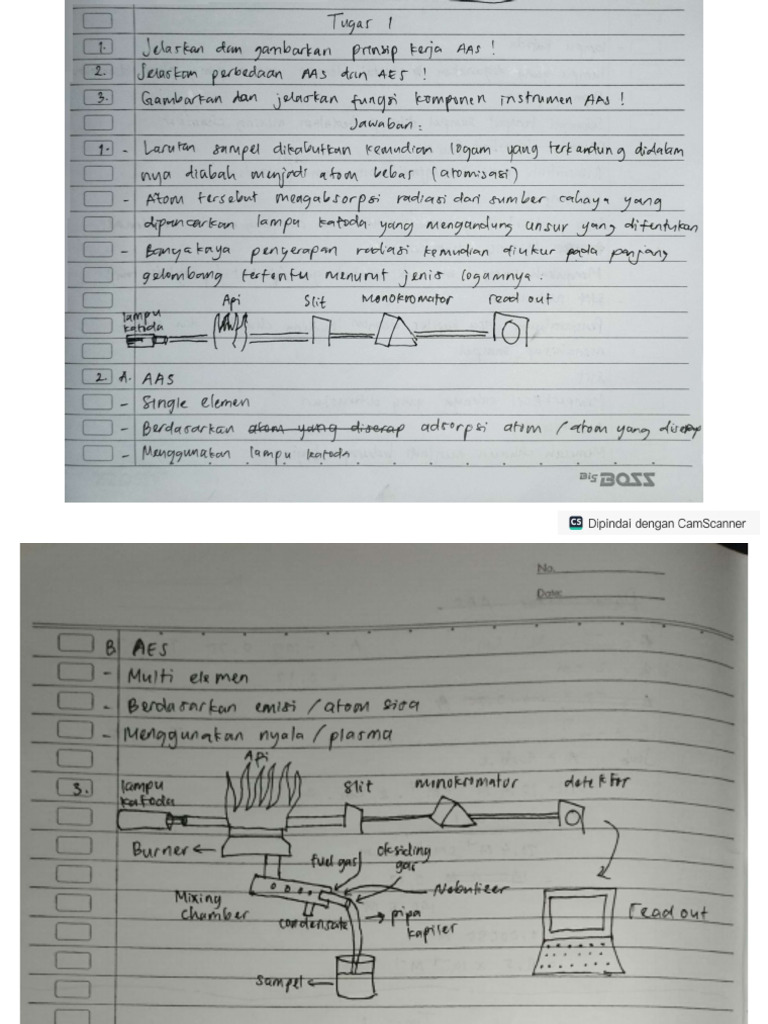 Tugas 1
1. Jelaskan dan gambarkan prinsip kerja AAS !
2. Jelaskan perbedaan AAS dan AES !
3. Gambarkan dan jelaskan fungsi komponen instrumen AAS !
Jawaban :
1. - Larutan sampel dikabutkan kemudian logam yang terkandung didalam
nya diubah menjadi atom bebas (atomisasi)
- Atom tersebut mengabsorpsi radiasi dari sumber cahaya yang
dipancarkan lampu katoda yang mengandung unsur yang ditentukan
- Banyakaya penyerapan radiasi kemudian diukur pada panjang
gelombang tertentu menurut jenis logamnya.
lampu katoda Api Slit Monokromator read out
2. A. AAS
- Single elemen
- Berdasarkan atom yang diserap adsorpsi atom / atom yang diserap
- Menggunakan lampu katoda
Big BOSS
CS Dipindai dengan CamScanner
No.
Date:
B AES
- Multi elemen
- Berdasarkan emisi / atom sisa
- Menggunakan nyala / plasma
3. lampu katoda Api Slit monokromator detektor
Burner
fuel gas
oksiding gas
Mixing chamber
Nebulizer
condensate
pipa kapiler
read out
sampel